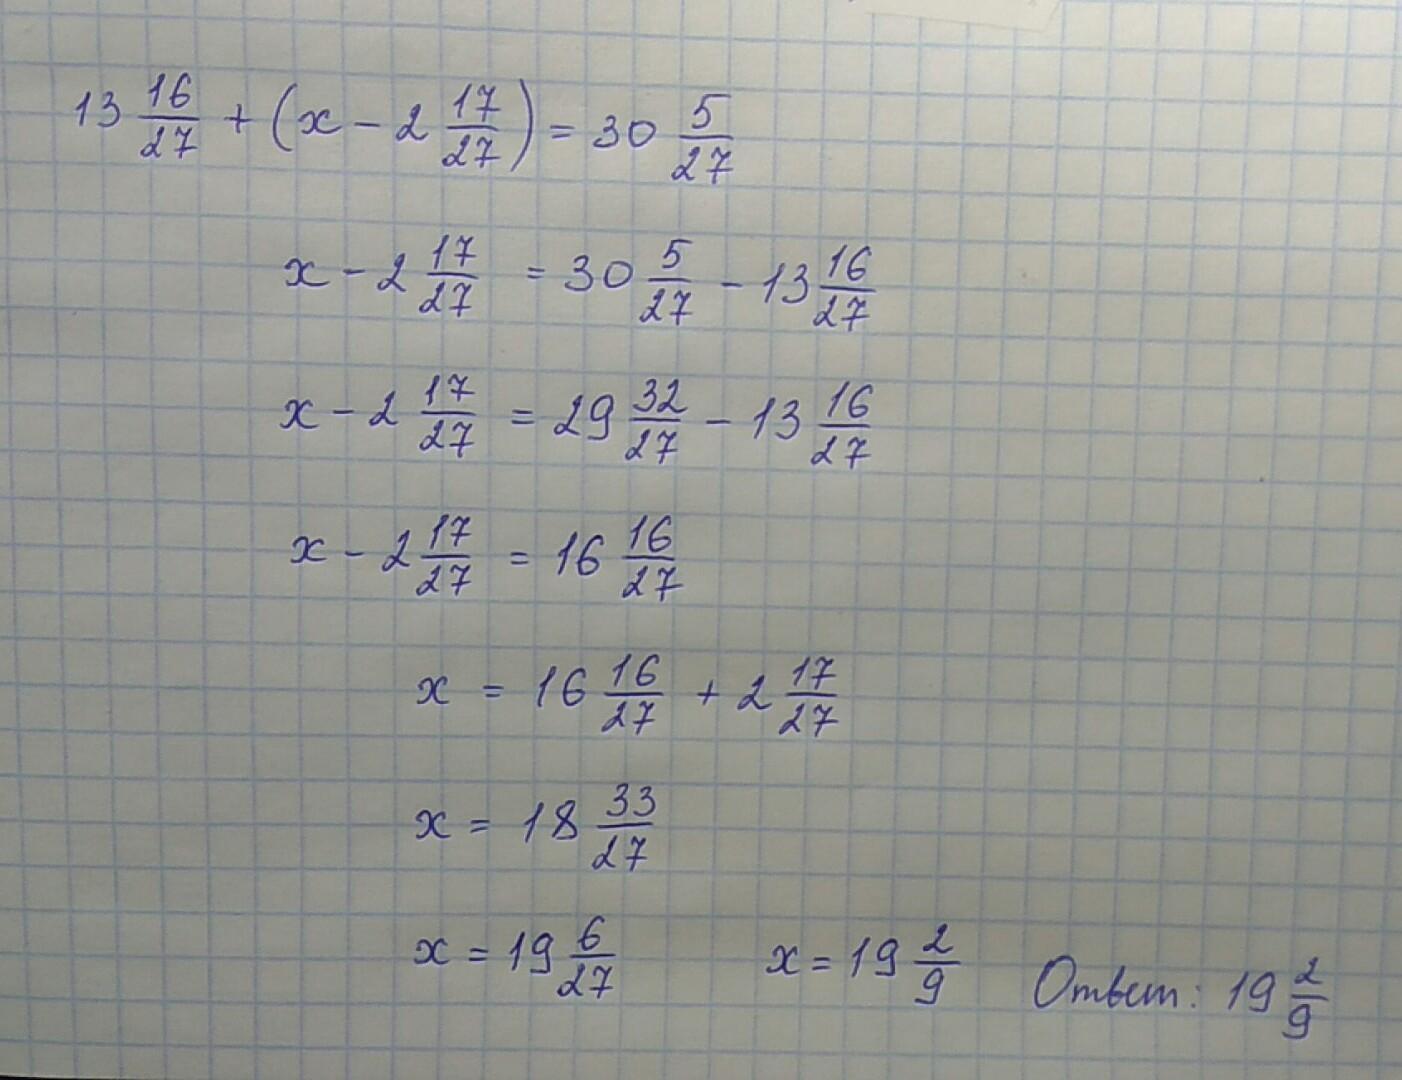 13 16/27 + (x - 2 17/27) = 30 5/27
x - 2 17/27 = 30 5/27 - 13 16/27
x - 2 17/27 = 29 32/27 - 13 16/27
x - 2 17/27 = 16 16/27
x = 16 16/27 + 2 17/27
x = 18 33/27
x = 19 6/27 x = 19 2/9 Ответ: 19 2/9